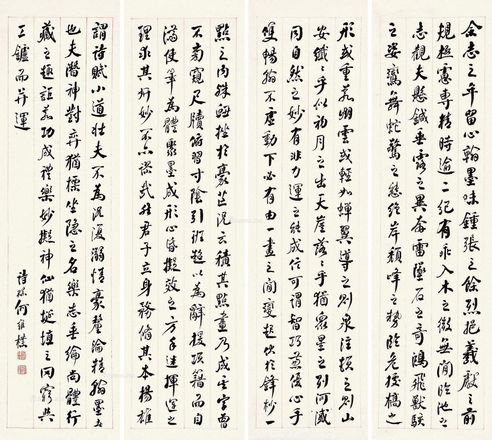 余志之年留心翰墨味鍾張之餘烈挹羲獻之前
規極慮專精時逾二紀有乖入木之微無間臨池之
志觀夫懸針垂露之異奔雷墜石之奇鴻飛獸駭
之姿鸞舞蛇驚之態絕岸頹峰之勢臨危據槁之
形或重若崩雲或輕如蟬翼導之則泉注頓之則山
安纖纖乎似初月之出天崖落落乎猶衆星之列河漢
同自然之妙有非力運之能成信可謂智巧兼優心手
雙暢翰不虛動下必有由一畫之間變起伏於鋒杪一
點之內殊衄挫於豪芒況云積其點畫乃成其字曾
不傍窺尺牘俯習寸陰引班超以為辭援項籍而自
滿任筆為體聚墨成形心昏擬效之方手迷揮運之
理求其妍妙不亦謬哉然君子立身務脩其本楊雄
謂詩賦小道壯夫不為況復溺情豪釐淪精翰墨者
也夫潛神對弈猶標坐隱之名樂志垂綸尚體行
藏之趣詎若功成禮樂妙擬神仙猶埏埴之罔窮與
工鑪而並運
詩孫何維樸